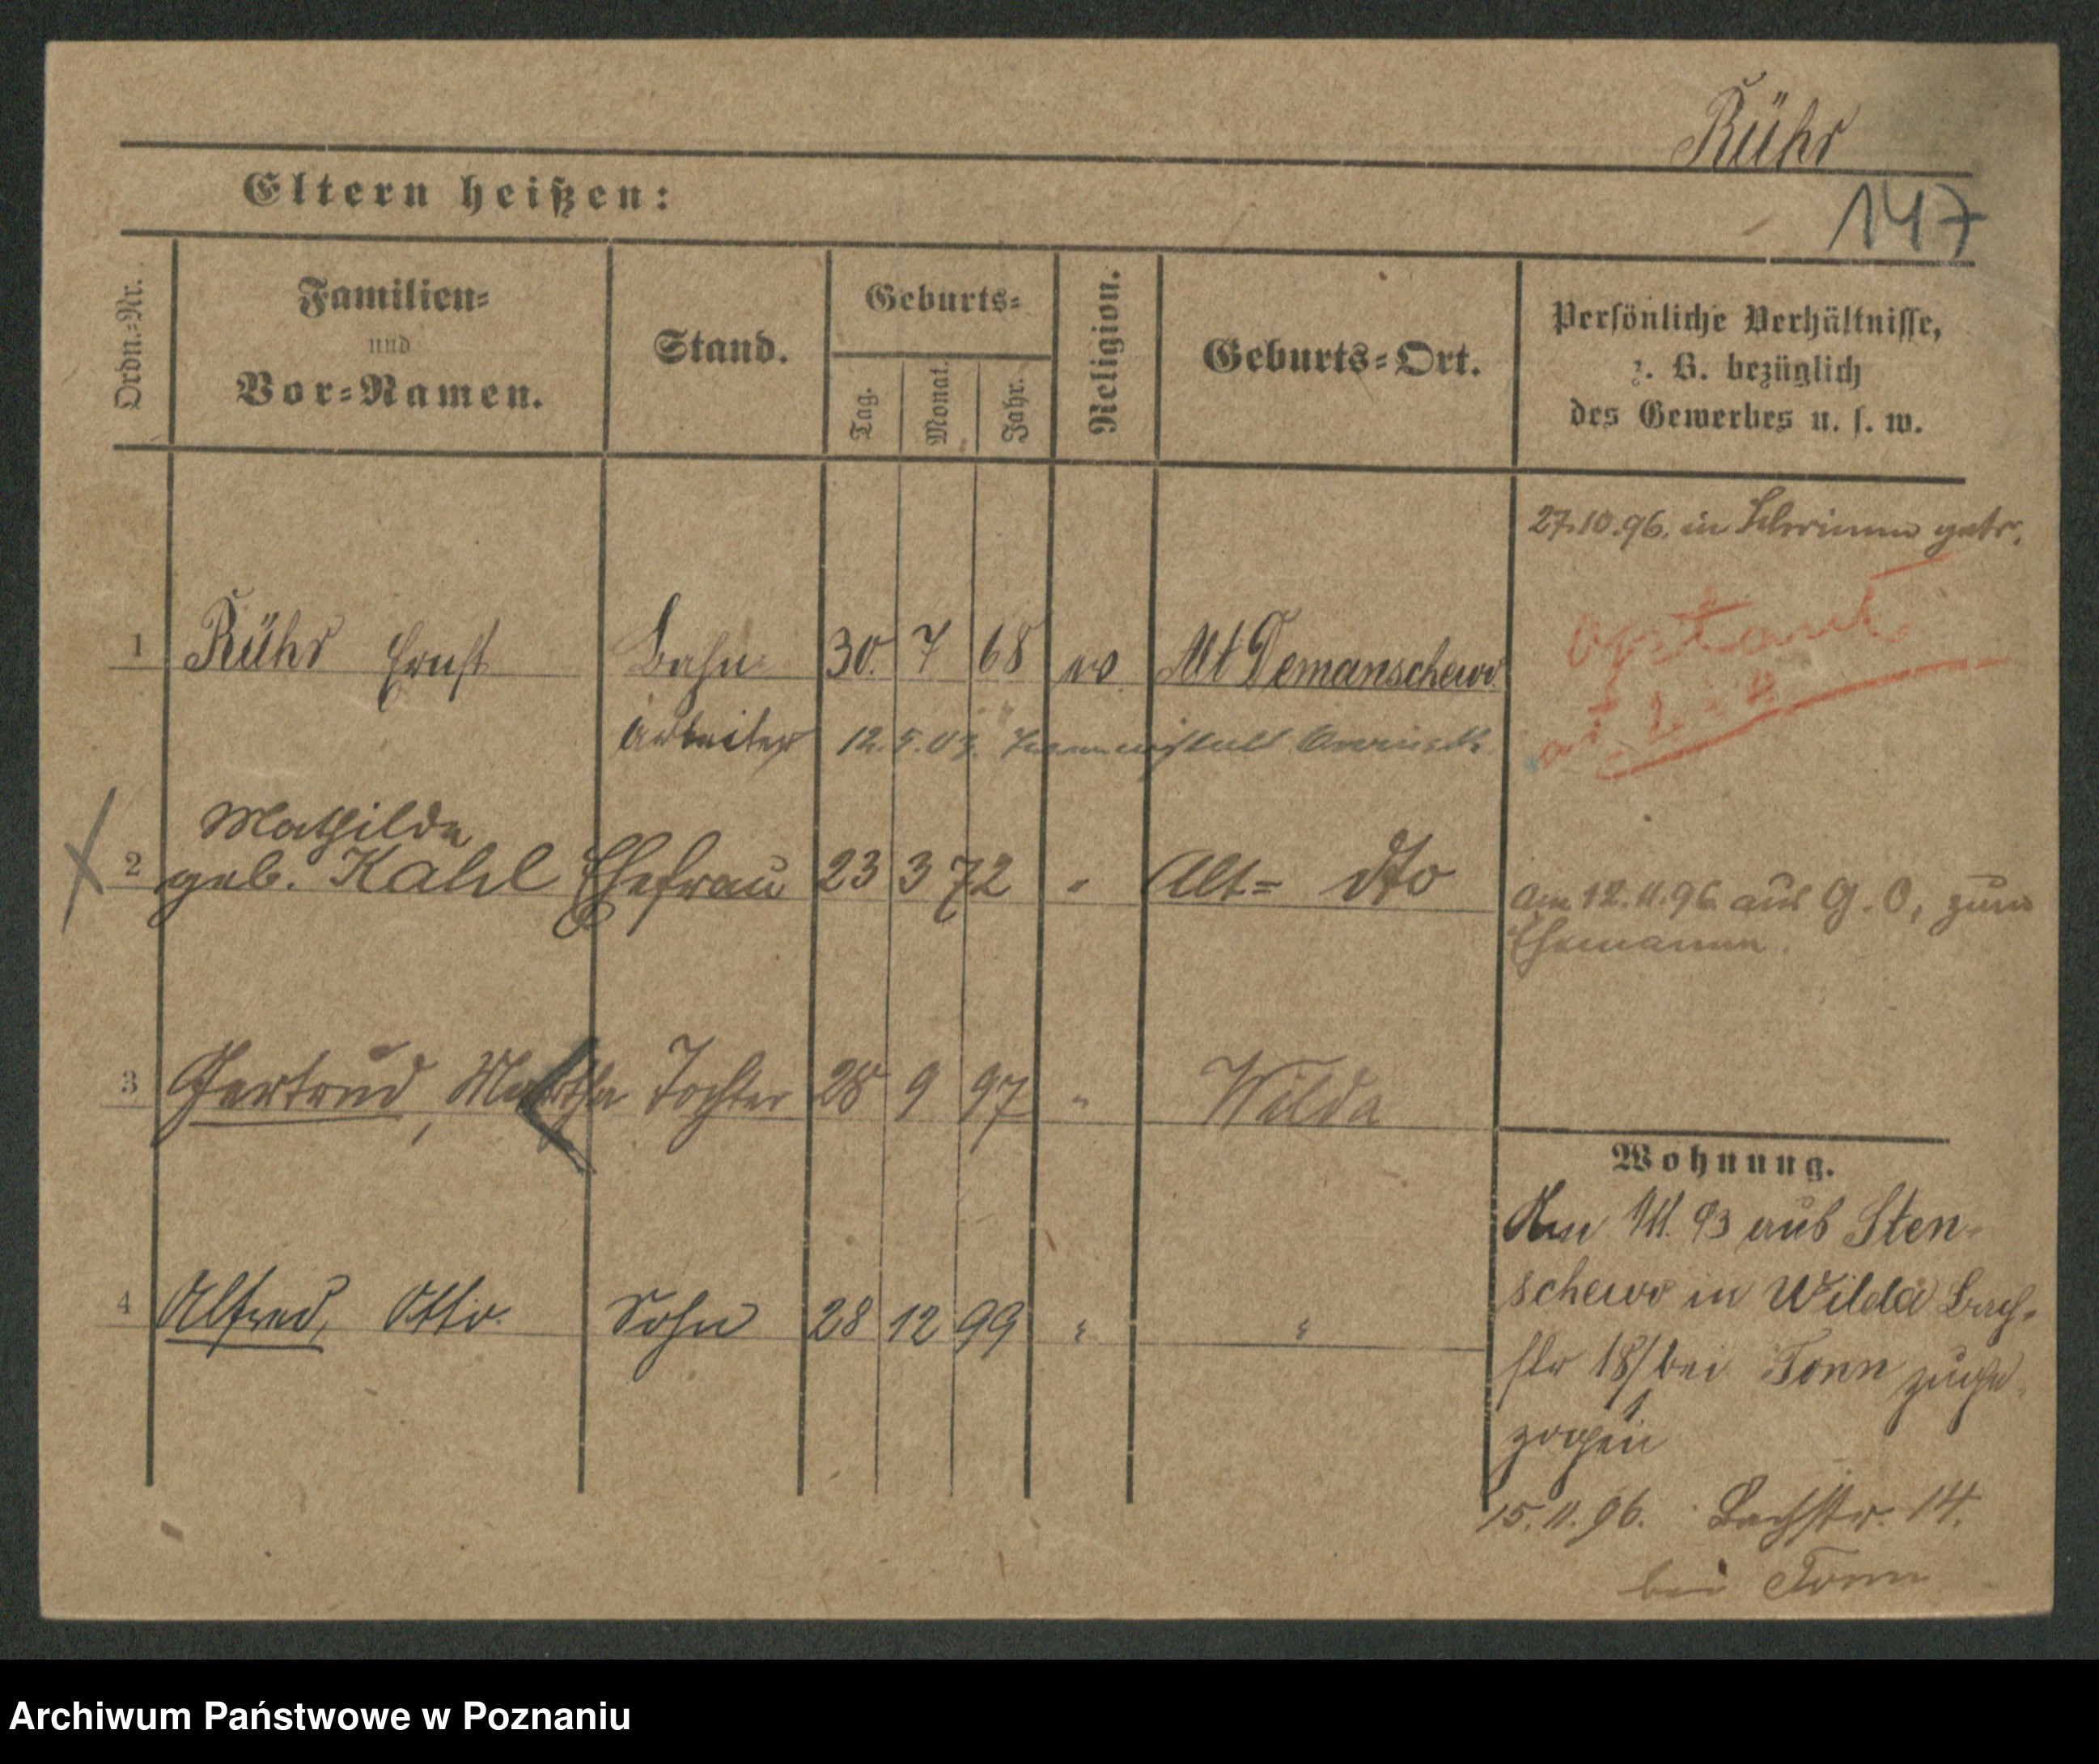 Rühr
147
Eltern heißen:
Ordn.-Nr.
Familien-
und
Vor-Namen.
Stand.
Geburts-
Tag.
Monat.
Jahr.
Religion.
Geburts-Ort.
Persönliche Verhältnisse,
z. B. bezüglich
des Gewerbes u. s. w.
27.10.96. in Schrimm getr.
1 Rühr Ernst Bahn- 30. 7 68 ev. Alt Demanschewo
arbeiter 12.5.03.
Mathilde
2 geb. Kahl Ehefrau 23 3 72 " Alt= dto
Am 12.11.96 aus G. O, zum
Ehemann.
3 Gertrud, Martha Tochter 28 9 97 " Wilda
4 Alfred, Otto. Sohn 28 12 99 " "
Wohnung.
Am 93 aus Sten-
schewo in Wilda Bach-
str 18/ bei Tonn zuge-
zogen
15.11.96. Bachstr. 14.
bei Tonn
Archiwum Państwowe w Poznaniu